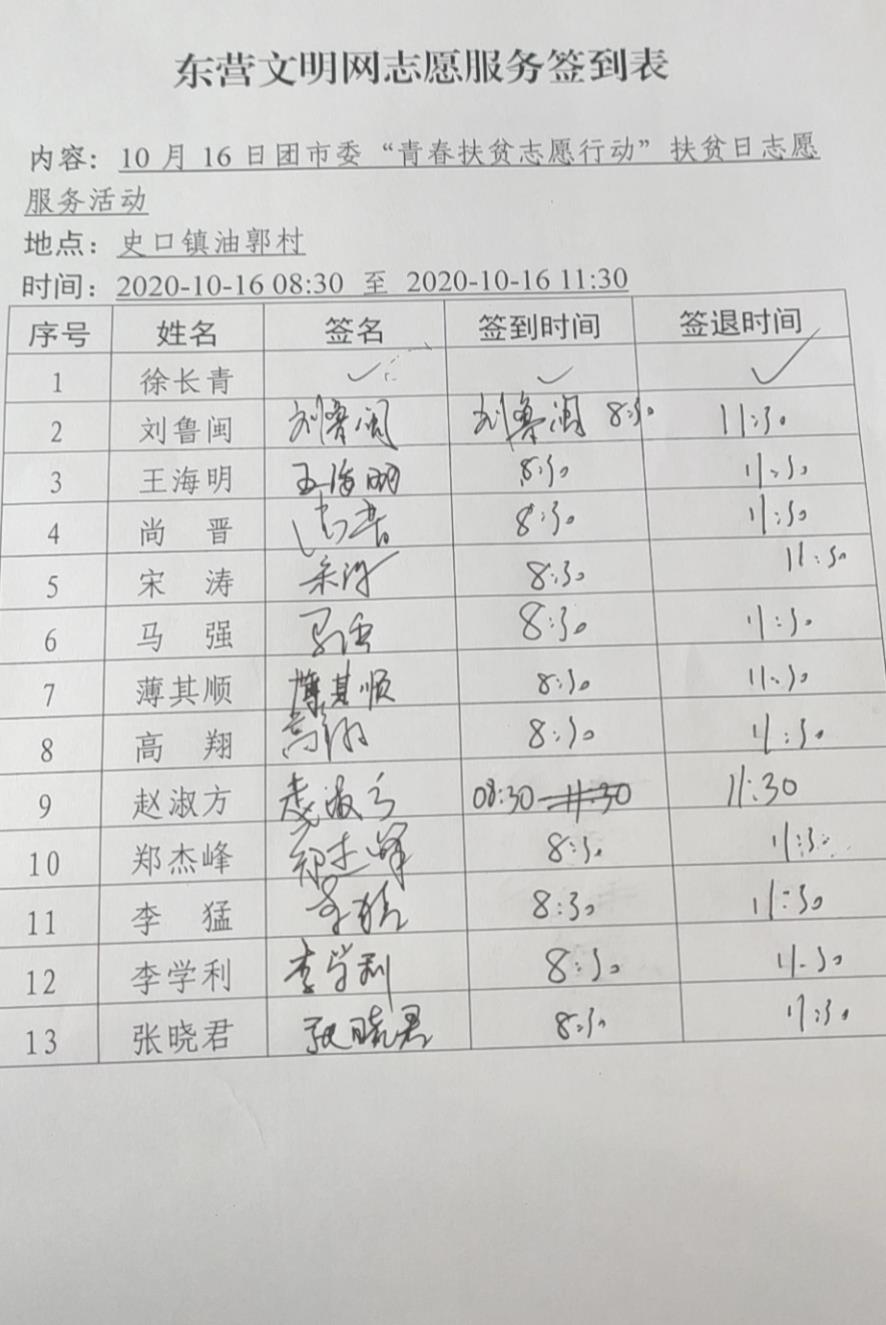 东营文明网志愿服务签到表
内容：10月16日团市委“青春扶贫志愿行动”扶贫日志愿
服务活动
地点：史口镇油郭村
时间：2020-10-16 08:30 至 2020-10-16 11:30
序号 姓名 签名 签到时间 签退时间
1 徐长青 ✓ ✓ ✓
2 刘鲁闽 刘鲁闽 刘鲁闽 8:30 11:30
3 王海明 王海明 8:30 11:30
4 尚 晋 尚晋 8:30 11:30
5 宋 涛 宋涛 8:30 11:30
6 马 强 马强 8:30 11:30
7 薄其顺 薄其顺 8:30 11:30
8 高 翔 高翔 8:30 11:30
9 赵淑方 赵淑方 08:30 11:30 11:30
10 郑杰峰 郑杰峰 8:30 11:30
11 李 猛 李猛 8:30 11:30
12 李学利 李学利 8:30 11.30
13 张晓君 张晓君 8:30 11:30